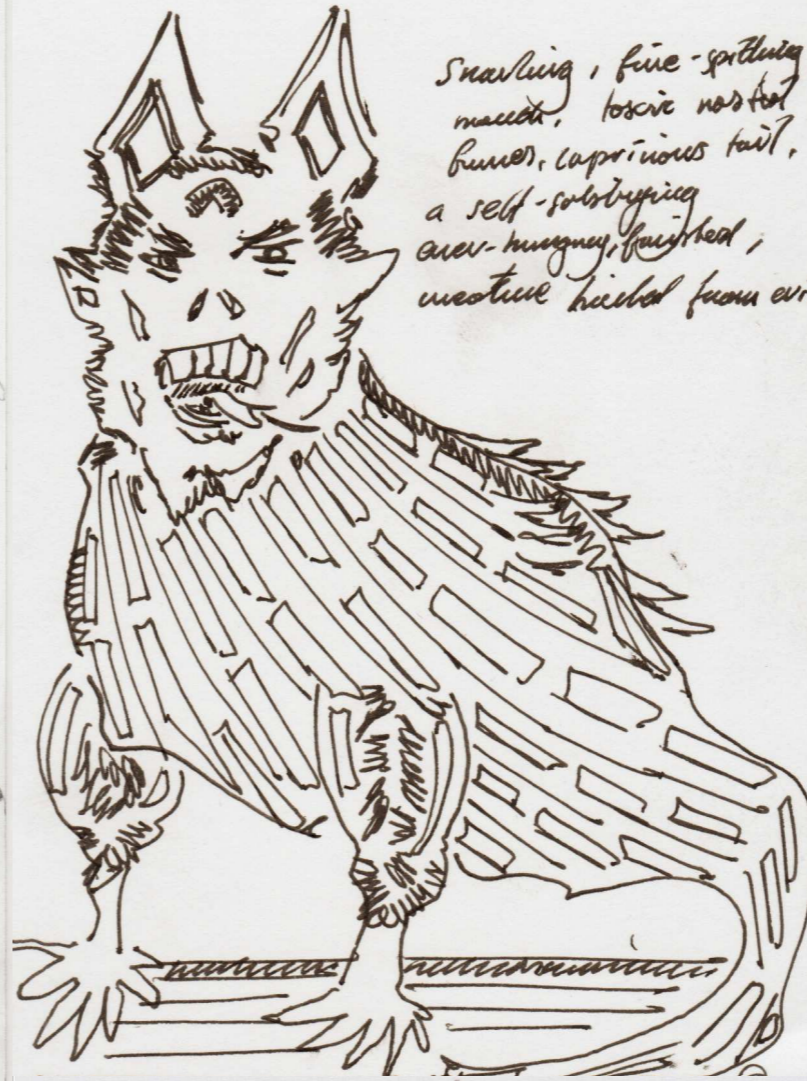 Snarling, fire-spitting
mouth, toxic nostril
fumes, capricious tail,
a self-satisfying
ever-hungry, famished,
creature hirched from